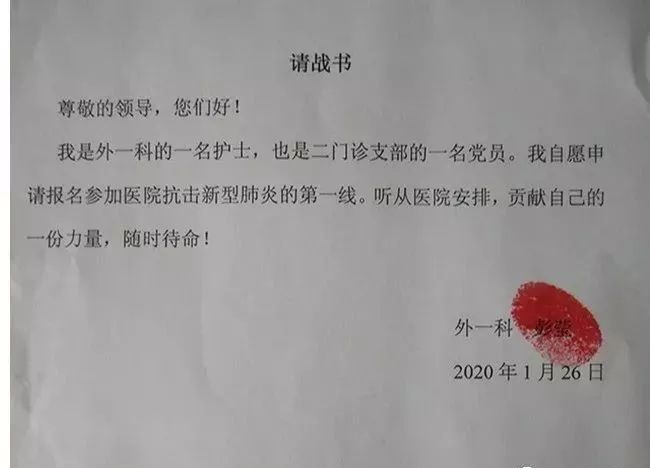 请战书
尊敬的领导，您们好！
我是外一科的一名护士，也是二门诊支部的一名党员。我自愿申
请报名参加医院抗击新型肺炎的第一线。听从医院安排，贡献自己的
一份力量，随时待命！
外一科 彭莹
2020 年 1 月 26 日